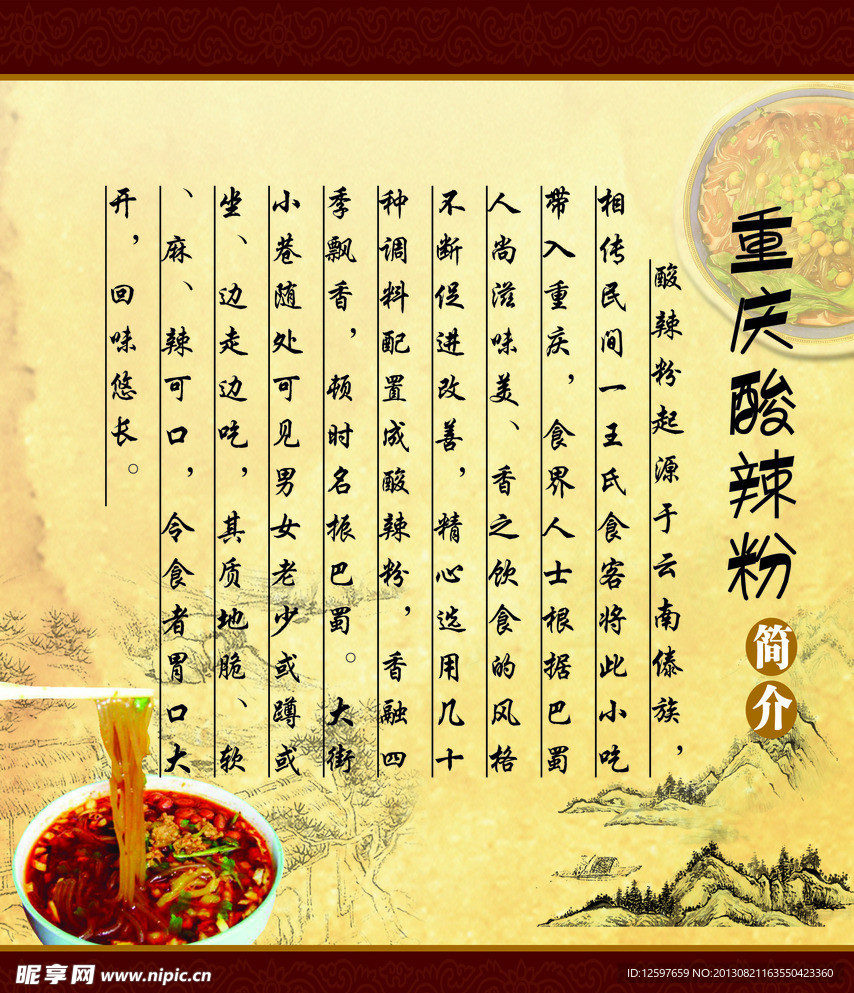 重庆酸辣粉
简介
酸辣粉起源于云南傣族，
相传民间一王氏食客将此小吃
带入重庆，食界人士根据巴蜀
人尚滋味美、香之饮食的风格
不断促进改善，精心选用几十
种调料配置成酸辣粉，香融四
季飘香，顿时名振巴蜀。大街
小巷随处可见男女老少或蹲或
坐、边走边吃，其质地脆、软
、麻、辣可口，令食者胃口大
开，回味悠长。
昵享网 www.nipic.cn
ID:12597659 NO:20130821163550423360